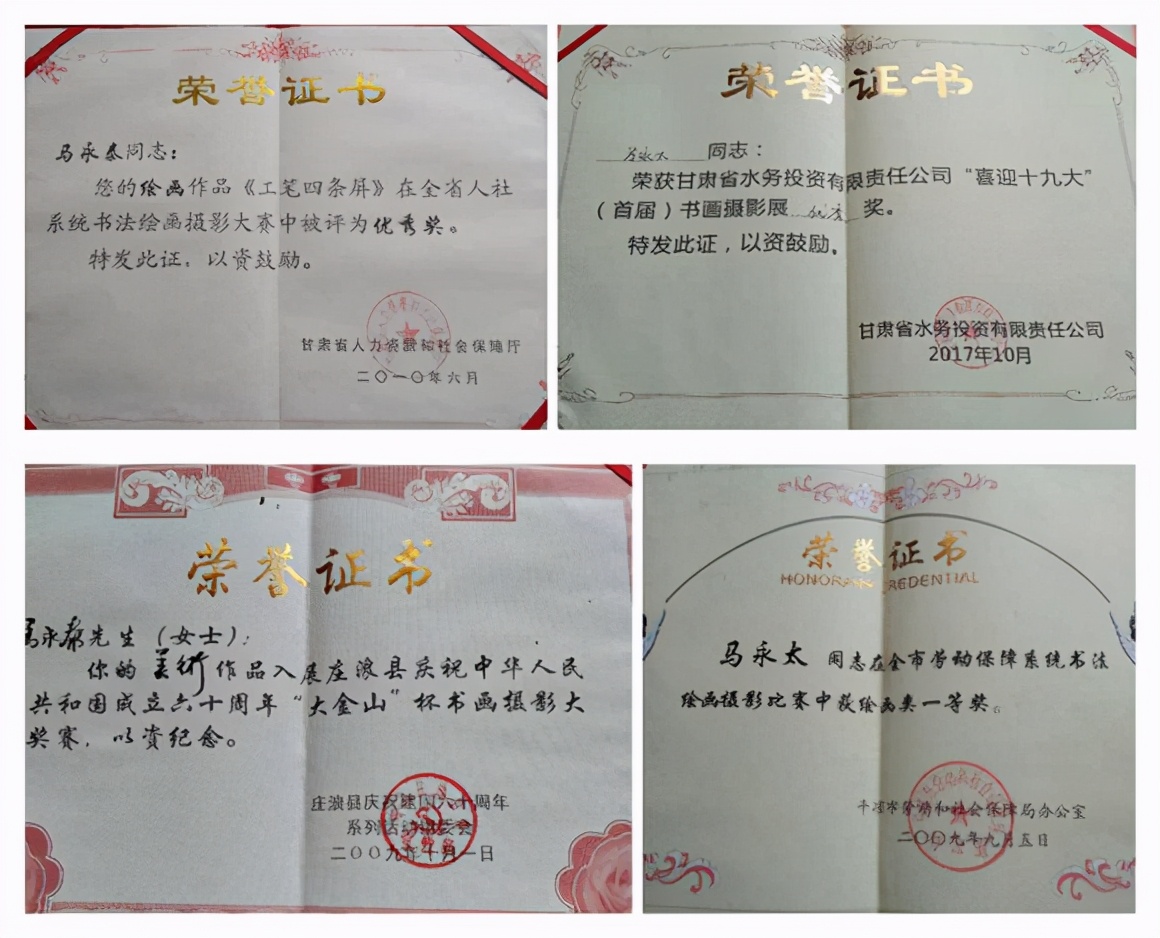 荣誉证书
马永泰同志：
您的绘画作品《工笔四条屏》在全省人社
系统书法绘画摄影大赛中被评为优秀奖。
特发此证，以资鼓励。
甘肃省人力资源和社会保障厅
二〇一〇年六月
荣誉证书
马永太 同志：
荣获甘肃省水务投资有限责任公司“喜迎十九大”
（首届）书画摄影展 优秀 奖。
特发此证，以资鼓励。
甘肃省水务投资有限责任公司
2017年10月
荣誉证书
马永泰先生（女士）：
你的美術作品入展庄浪县庆祝中华人民
共和国成立六十周年“大金山”杯书画摄影大
奖赛，以资纪念。
庄浪县庆祝建国六十周年
系列活动组委会
二〇〇九年十月一日
荣誉证书
HONORARY CREDENTIAL
马永太 同志在全市劳动保障系统书法
绘画摄影比赛中获绘画类一等奖。
平凉市劳动和社会保障局办公室
二〇〇九年九月五日